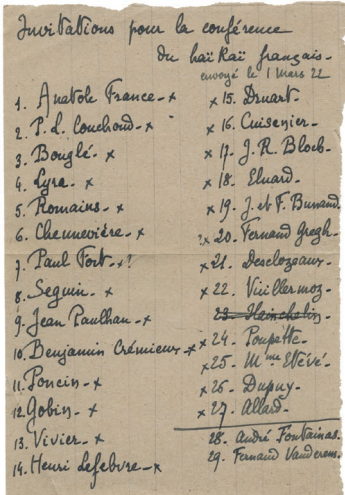 Invitations pour la conférence
du haï Kaï français.
envoyé le 1 Mars 22
1. Anatole France - x
2. P. L. Couchoud. x
3. Bouglé. x
4. Lyra. x
5. Romains - x
6. Chennevière. x
7. Paul Fort. x?
8. Seguin. x
9. Jean Paulhan. x
10. Benjamin Crémieux x
11. Poncin. x
12. Gobin. x
13. Vivier. x
14. Henri Lefebvre - x
x 15. Druart.
x 16. Cuisenier.
x 17. J. R. Bloch.
x 18. Eluard.
x 19. J. et F. Bunand.
?x 20. Fernand Gregh.
x 21. Desclozeaux.
x 22. Vuillermoz.
23.
x 24. Poupette.
x 25. Mme Etévé.
x 26. Dupuy.
x 27. Allard.
28. André Fontainas.
29. Fernand Vanderem.